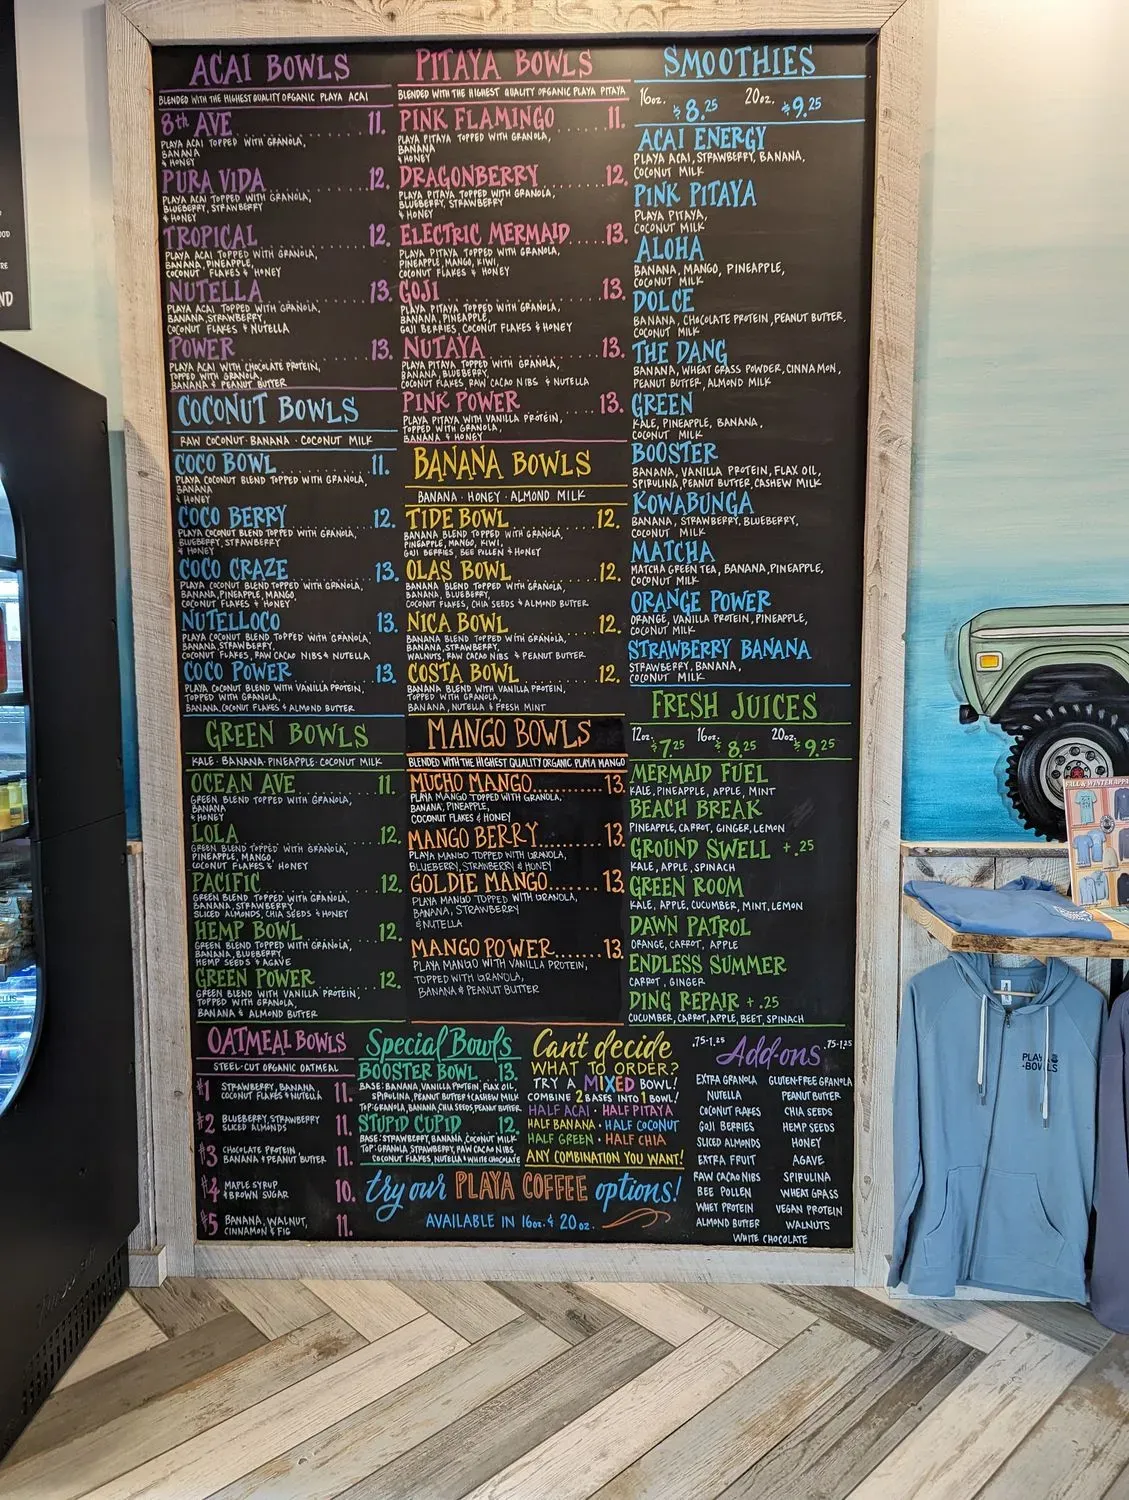 ACAI BOWLS
BLENDED WITH THE HIGHEST QUALITY ORGANIC PLAYA ACAI
8th AVE 11.
PLAYA ACAI TOPPED WITH GRANOLA,
BANANA
& HONEY
PURA VIDA 12.
PLAYA ACAI TOPPED WITH GRANOLA,
BLUEBERRY, STRAWBERRY
& HONEY
TROPICAL 12.
PLAYA ACAI TOPPED WITH GRANOLA,
BANANA, PINEAPPLE,
COCONUT FLAKES & HONEY
NUTELLA 13.
PLAYA ACAI TOPPED WITH GRANOLA,
BANANA, STRAWBERRY,
COCONUT FLAKES & NUTELLA
POWER 13.
PLAYA ACAI WITH CHOCOLATE PROTEIN,
TOPPED WITH GRANOLA,
BANANA & PEANUT BUTTER
COCONUT BOWLS
RAW COCONUT · BANANA · COCONUT MILK
COCO BOWL 11.
PLAYA COCONUT BLEND TOPPED WITH GRANOLA,
BANANA
& HONEY
COCO BERRY 12.
PLAYA COCONUT BLEND TOPPED WITH GRANOLA,
BLUEBERRY, STRAWBERRY
& HONEY
COCO CRAZE 13.
PLAYA COCONUT BLEND TOPPED WITH GRANOLA,
BANANA, PINEAPPLE, MANGO,
COCONUT FLAKES & HONEY
NUTELLOCO 13.
PLAYA COCONUT BLEND TOPPED WITH GRANOLA,
BANANA, STRAWBERRY,
COCONUT FLAKES, RAW CACAO NIBS & NUTELLA
COCO POWER 13.
PLAYA COCONUT BLEND WITH VANILLA PROTEIN,
TOPPED WITH GRANOLA,
BANANA, COCONUT FLAKES & ALMOND BUTTER
GREEN BOWLS
KALE · BANANA · PINEAPPLE · COCONUT MILK
OCEAN AVE 11.
GREEN BLEND TOPPED WITH GRANOLA,
BANANA
& HONEY
LOLA 12.
GREEN BLEND TOPPED WITH GRANOLA,
PINEAPPLE, MANGO,
COCONUT FLAKES & HONEY
PACIFIC 12.
GREEN BLEND TOPPED WITH GRANOLA,
BANANA, STRAWBERRY,
SLICED ALMONDS, CHIA SEEDS & HONEY
HEMP BOWL 12.
GREEN BLEND TOPPED WITH GRANOLA,
BANANA, BLUEBERRY,
HEMP SEEDS & AGAVE
GREEN POWER 12.
GREEN BLEND WITH VANILLA PROTEIN,
TOPPED WITH GRANOLA,
BANANA & ALMOND BUTTER
PITAYA BOWLS
BLENDED WITH THE HIGHEST QUALITY ORGANIC PLAYA PITAYA
PINK FLAMINGO 11.
PLAYA PITAYA TOPPED WITH GRANOLA,
BANANA
& HONEY
DRAGONBERRY 12.
PLAYA PITAYA TOPPED WITH GRANOLA,
BLUEBERRY, STRAWBERRY
& HONEY
ELECTRIC MERMAID 13.
PLAYA PITAYA TOPPED WITH GRANOLA,
PINEAPPLE, MANGO, KIWI,
COCONUT FLAKES & HONEY
GOJI 13.
PLAYA PITAYA TOPPED WITH GRANOLA,
BANANA, PINEAPPLE,
GOJI BERRIES, COCONUT FLAKES & HONEY
NUTAYA 13.
PLAYA PITAYA TOPPED WITH GRANOLA,
BANANA, BLUEBERRY,
COCONUT FLAKES, RAW CACAO NIBS & NUTELLA
PINK POWER 13.
PLAYA PITAYA WITH VANILLA PROTEIN,
TOPPED WITH GRANOLA,
BANANA & HONEY
BANANA BOWLS
BANANA · HONEY · ALMOND MILK
TIDE BOWL 12.
BANANA BLEND TOPPED WITH GRANOLA,
PINEAPPLE, MANGO, KIWI,
GOJI BERRIES, BEE POLLEN & HONEY
OLAS BOWL 12.
BANANA BLEND TOPPED WITH GRANOLA,
BANANA, BLUEBERRY,
COCONUT FLAKES, CHIA SEEDS & ALMOND BUTTER
NICA BOWL 12.
BANANA BLEND TOPPED WITH GRANOLA,
BANANA, STRAWBERRY,
WALNUTS, RAW CACAO NIBS & PEANUT BUTTER
COSTA BOWL 12.
BANANA BLEND WITH VANILLA PROTEIN,
TOPPED WITH GRANOLA,
BANANA, NUTELLA & FRESH MINT
MANGO BOWLS
BLENDED WITH THE HIGHEST QUALITY ORGANIC PLAYA MANGO
MUCHO MANGO 13.
PLAYA MANGO TOPPED WITH GRANOLA,
BANANA, PINEAPPLE,
COCONUT FLAKES & HONEY
MANGO BERRY 13.
PLAYA MANGO TOPPED WITH GRANOLA,
BLUEBERRY, STRAWBERRY & HONEY
GOLDIE MANGO 13.
PLAYA MANGO TOPPED WITH GRANOLA,
BANANA, STRAWBERRY
& NUTELLA
MANGO POWER 13.
PLAYA MANGO WITH VANILLA PROTEIN,
TOPPED WITH GRANOLA,
BANANA & PEANUT BUTTER
SMOOTHIES
16oz. $8.25 20oz. $9.25
ACAI ENERGY
PLAYA ACAI, STRAWBERRY, BANANA,
COCONUT MILK
PINK PITAYA
PLAYA PITAYA,
COCONUT MILK
ALOHA
BANANA, MANGO, PINEAPPLE,
COCONUT MILK
DOLCE
BANANA, CHOCOLATE PROTEIN, PEANUT BUTTER,
COCONUT MILK
THE DANG
BANANA, WHEAT GRASS POWDER, CINNAMON,
PEANUT BUTTER, ALMOND MILK
GREEN
KALE, PINEAPPLE, BANANA,
COCONUT MILK
BOOSTER
BANANA, VANILLA PROTEIN, FLAX OIL,
SPIRULINA, PEANUT BUTTER, CASHEW MILK
KOWABUNGA
BANANA, STRAWBERRY, BLUEBERRY,
COCONUT MILK
MATCHA
MATCHA GREEN TEA, BANANA, PINEAPPLE,
COCONUT MILK
ORANGE POWER
ORANGE, VANILLA PROTEIN, PINEAPPLE,
COCONUT MILK
STRAWBERRY BANANA
STRAWBERRY, BANANA,
COCONUT MILK
FRESH JUICES
12oz. $7.25 16oz. $8.25 20oz. $9.25
MERMAID FUEL
KALE, PINEAPPLE, APPLE, MINT
BEACH BREAK
PINEAPPLE, CARROT, GINGER, LEMON
GROUND SWELL +.25
KALE, APPLE, SPINACH
GREEN ROOM
KALE, APPLE, CUCUMBER, MINT, LEMON
DAWN PATROL
ORANGE, CARROT, APPLE
ENDLESS SUMMER
CARROT, GINGER
DING REPAIR +.25
CUCUMBER, CARROT, APPLE, BEET, SPINACH
OATMEAL BOWLS
STEEL-CUT ORGANIC OATMEAL
#1 STRAWBERRY, BANANA,
COCONUT FLAKES & NUTELLA 11.
#2 BLUEBERRY, STRAWBERRY
SLICED ALMONDS 11.
#3 CHOCOLATE PROTEIN,
BANANA & PEANUT BUTTER 11.
#4 MAPLE SYRUP
& BROWN SUGAR 10.
#5 BANANA, WALNUT,
CINNAMON & FIG 11.
Special Bowls
BOOSTER BOWL 13.
BASE: BANANA, VANILLA PROTEIN, FLAX OIL,
SPIRULINA, PEANUT BUTTER & CASHEW MILK
TOP: GRANOLA, BANANA, CHIA SEEDS, PEANUT BUTTER
STUPID CUPID 12.
BASE: STRAWBERRY, BANANA, COCONUT MILK
TOP: GRANOLA, STRAWBERRY, RAW CACAO NIBS
COCONUT FLAKES, NUTELLA & WHITE CHOCOLATE
Can't decide
WHAT TO ORDER?
TRY A MIXED BOWL!
COMBINE 2 BASES INTO 1 BOWL!
HALF ACAI · HALF PITAYA
HALF BANANA · HALF COCONUT
HALF GREEN · HALF CHIA
ANY COMBINATION YOU WANT!
try our PLAYA COFFEE options!
AVAILABLE IN 16oz. & 20oz.
.75-1.25 Add-ons .75-1.25
EXTRA GRANOLA GLUTEN-FREE GRANOLA
NUTELLA PEANUT BUTTER
COCONUT FLAKES CHIA SEEDS
GOJI BERRIES HEMP SEEDS
SLICED ALMONDS HONEY
EXTRA FRUIT AGAVE
RAW CACAO NIBS SPIRULINA
BEE POLLEN WHEAT GRASS
WHEY PROTEIN VEGAN PROTEIN
ALMOND BUTTER WALNUTS
WHITE CHOCOLATE
FALL & WINTER
PLAYA
·BOWLS